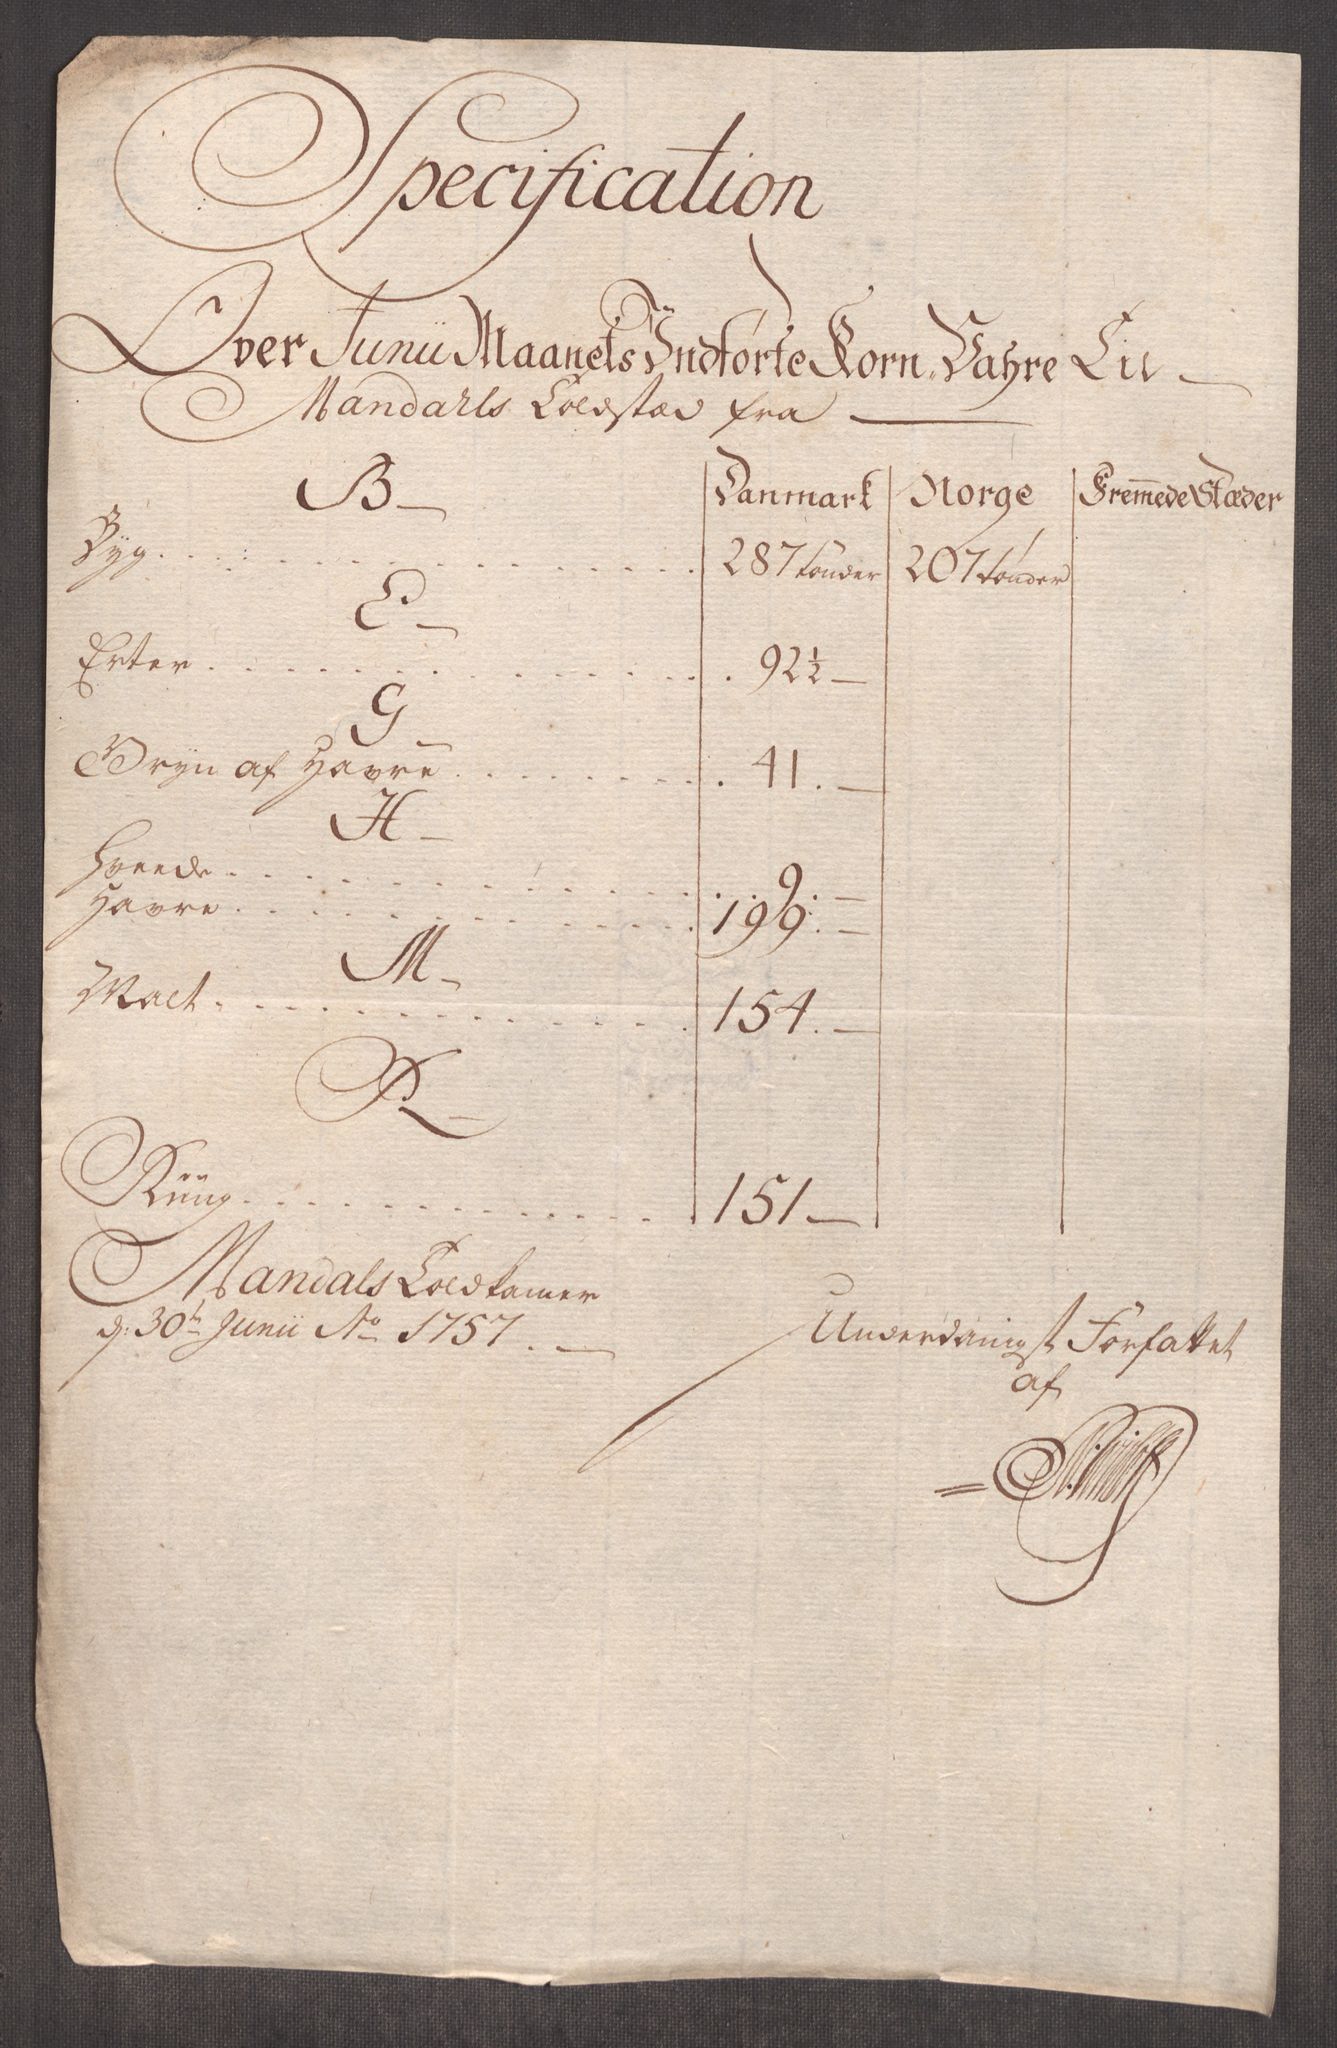 Specification
Over Junii Maanets Indførte Korn-Vahre Til
Mandahls Toldstæd fra
B
Danmark Norge Fremede Stæder
Byg 287 tønder 207 tønder
E
Erter 92½
G
Gryn af Havre 41.
H
Hvede 9
Havre 199:
M
Malt 154.
R
Rüüg 151
Mandals Toldkamer
d: 30te Junii Ao 1757.
Underdanigst Forfattet
af